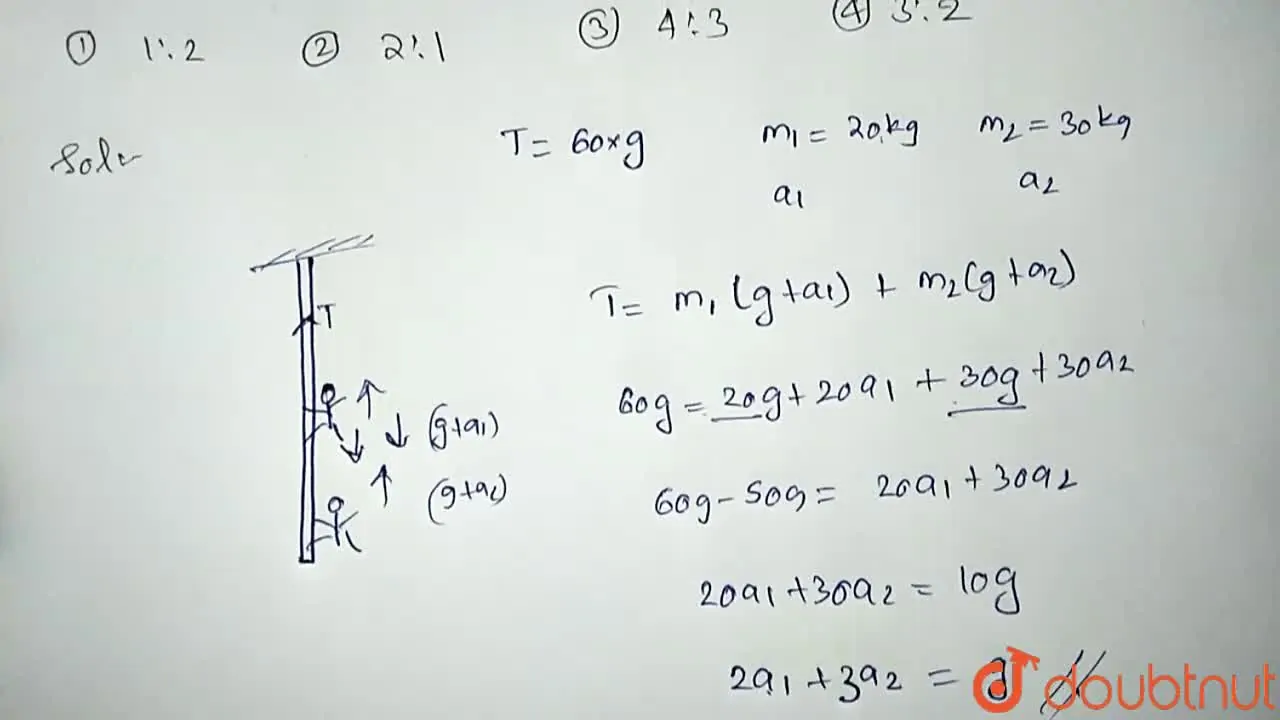 ① 1:2 ② 2:1 ③ 4:3 ④ 3:2
Soln
T = 60×g m₁ = 20kg m₂ = 30kg
a₁ a₂
T
T = m₁(g+a₁) + m₂(g+a₂)
60g = 20g + 20a₁ + 30g + 30a₂
(g+a₁)
(g+a₂)
60g - 50g = 20a₁ + 30a₂
20a₁ + 30a₂ = 10g
2a₁ + 3a₂ = g
doubtnut